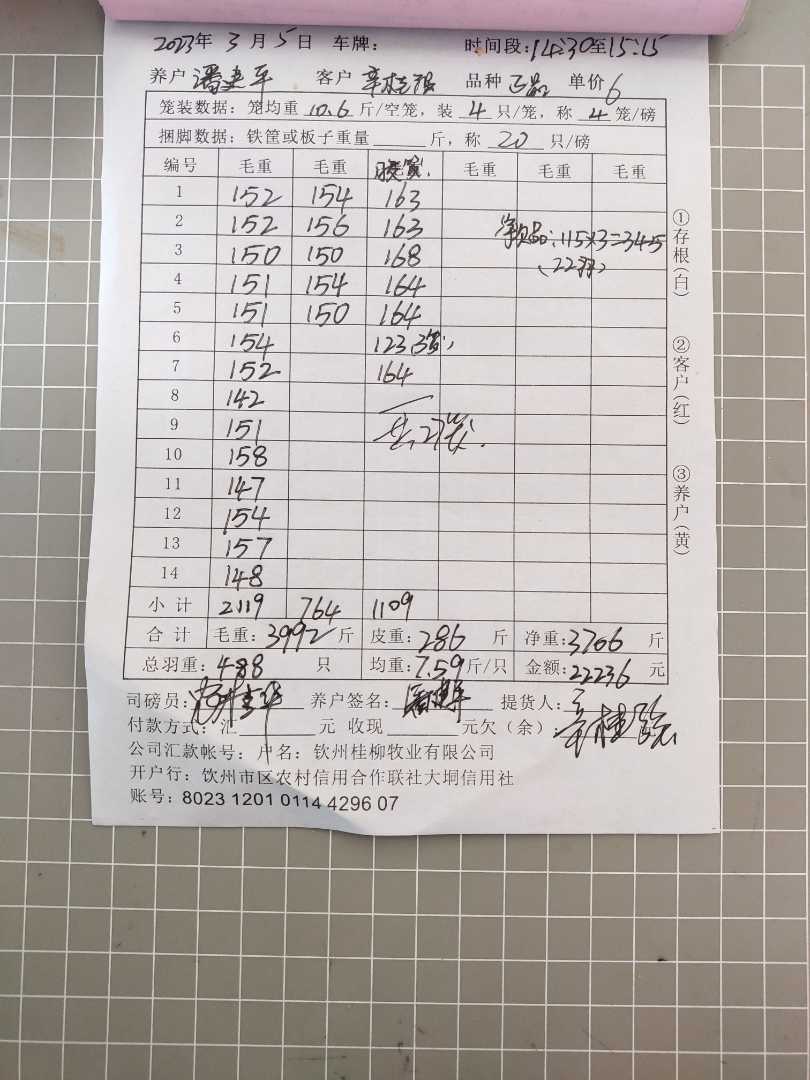 2023年 3月 5日 车牌： 时间段：14:30至15:15
养户 潘建平 客户 辛桂强 品种 正品 单价 6
笼装数据：笼均重 10.6 斤/空笼，装 4 只/笼，称 4 笼/磅
捆脚数据：铁筐或板子重量 斤，称 20 只/磅
编号 毛重 毛重 毛重 毛重 毛重
1 152 154 163
2 152 156 163 次品：115×3=345
3 150 150 168
4 151 154 164
5 151 150 164
6 154 123
7 152 164
8 142
9 151 共27笼
10 158
11 147
12 154
13 157
14 148
小计 2119 764 1109
合计 毛重：3992斤 皮重：286 斤 净重：3766 斤
总羽重：488 只 均重：7.59斤/只 金额：22236 元
司磅员： 养户签名：潘建平 提货人：
付款方式：汇 元 收现 元欠（余）：
公司汇款帐号：户名：钦州桂柳牧业有限公司
开户行：饮州市区农村信用合作联社大垌信用社
账号：8023 1201 0114 4296 07
①存根（白）
②客户（红）
③养户（黄）